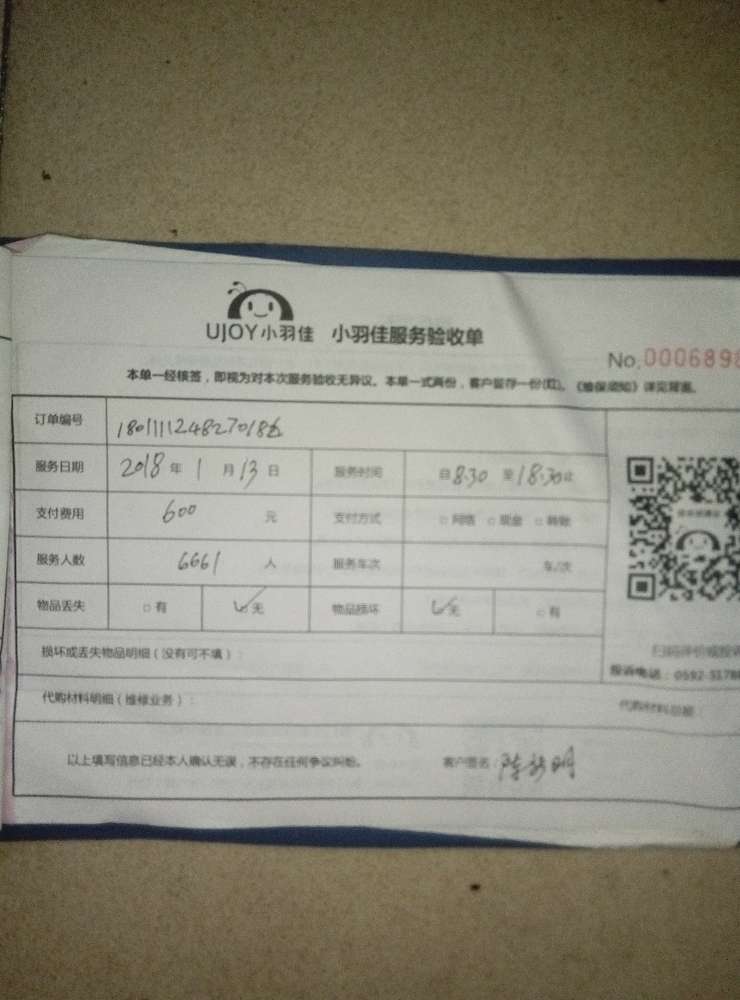 UJOY小羽佳 小羽佳服务验收单
No.0006898
本单一经核签，即视为对本次服务验收无异议。本单一式两份，客户留存一份(红)。《维保须知》详见背面。
订单编号
服务日期 2018年1月13日 服务时间 自8:30至18:30止
支付费用 600元 支付方式 □网络 □现金 □转账
服务人数 6661人 服务车次 车/次
物品丢失 □有 ☑无 物品损坏 ☑无 □有
损坏或丢失物品明细（没有可不填）：
投诉电话：0592-5178
代购材料明细（维修业务）： 代购材料总额：
以上填写信息已经本人确认无误，不存在任何争议纠纷。 客户签名：